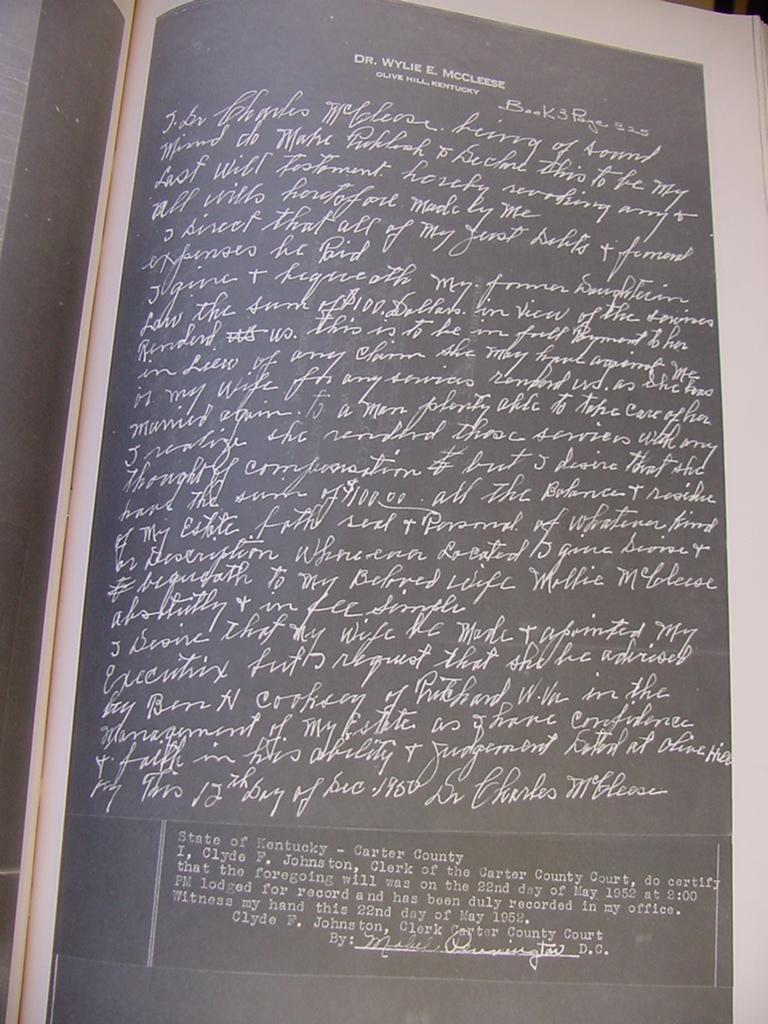 DR. WYLIE E. McCLEESE
OLIVE HILL, KENTUCKY
Book 3 Page 325
I Dr Charles McCleese being of sound
mind do Make Publish & Declare this to be my
Last Will Testament hereby revoking any &
all wills heretofore made by me
I Direct that all of my Just Debts & funeral
expenses be Paid
I give + bequeath my former Daughter in
Law the sum of $100. Dollars. in view of the services
Renderd us. this is to be in full Payment to her
in Lieu of any claim she may have against me
or my Wife for any services renderd us. as she has
married again. to a man plenty able to take care of her
I realize she renderd those services with any
thought of compensation but I desire that she
have the sum of $100.00. all the Balance & residue
of my Estate both real & Personal of whatever kind
or Description Whereever Located I give Devise &
bequeath to my Beloved wife Mollie McCleese
absolutly & in fee Simple
I Desire that my Wife be Made & apointed my
Executrix but I request that she be advised
by Ben H Cooksey of Prichard W.Va in the
Management of my Estate as I have confidence
& faith in his ability & Judgement Dated at Olive Hill
Ky This 12th Day of Dec. 1950 Dr Charles McCleese
State of Kentucky - Carter County
I, Clyde F. Johnston, Clerk of the Carter County Court, do certify
that the foregoing will was on the 22nd day of May 1952 at 2:00
PM lodged for record and has been duly recorded in my office.
Witness my hand this 22nd day of May 1952.
Clyde F. Johnston, Clerk Carter County Court
By: Mabel D.C.